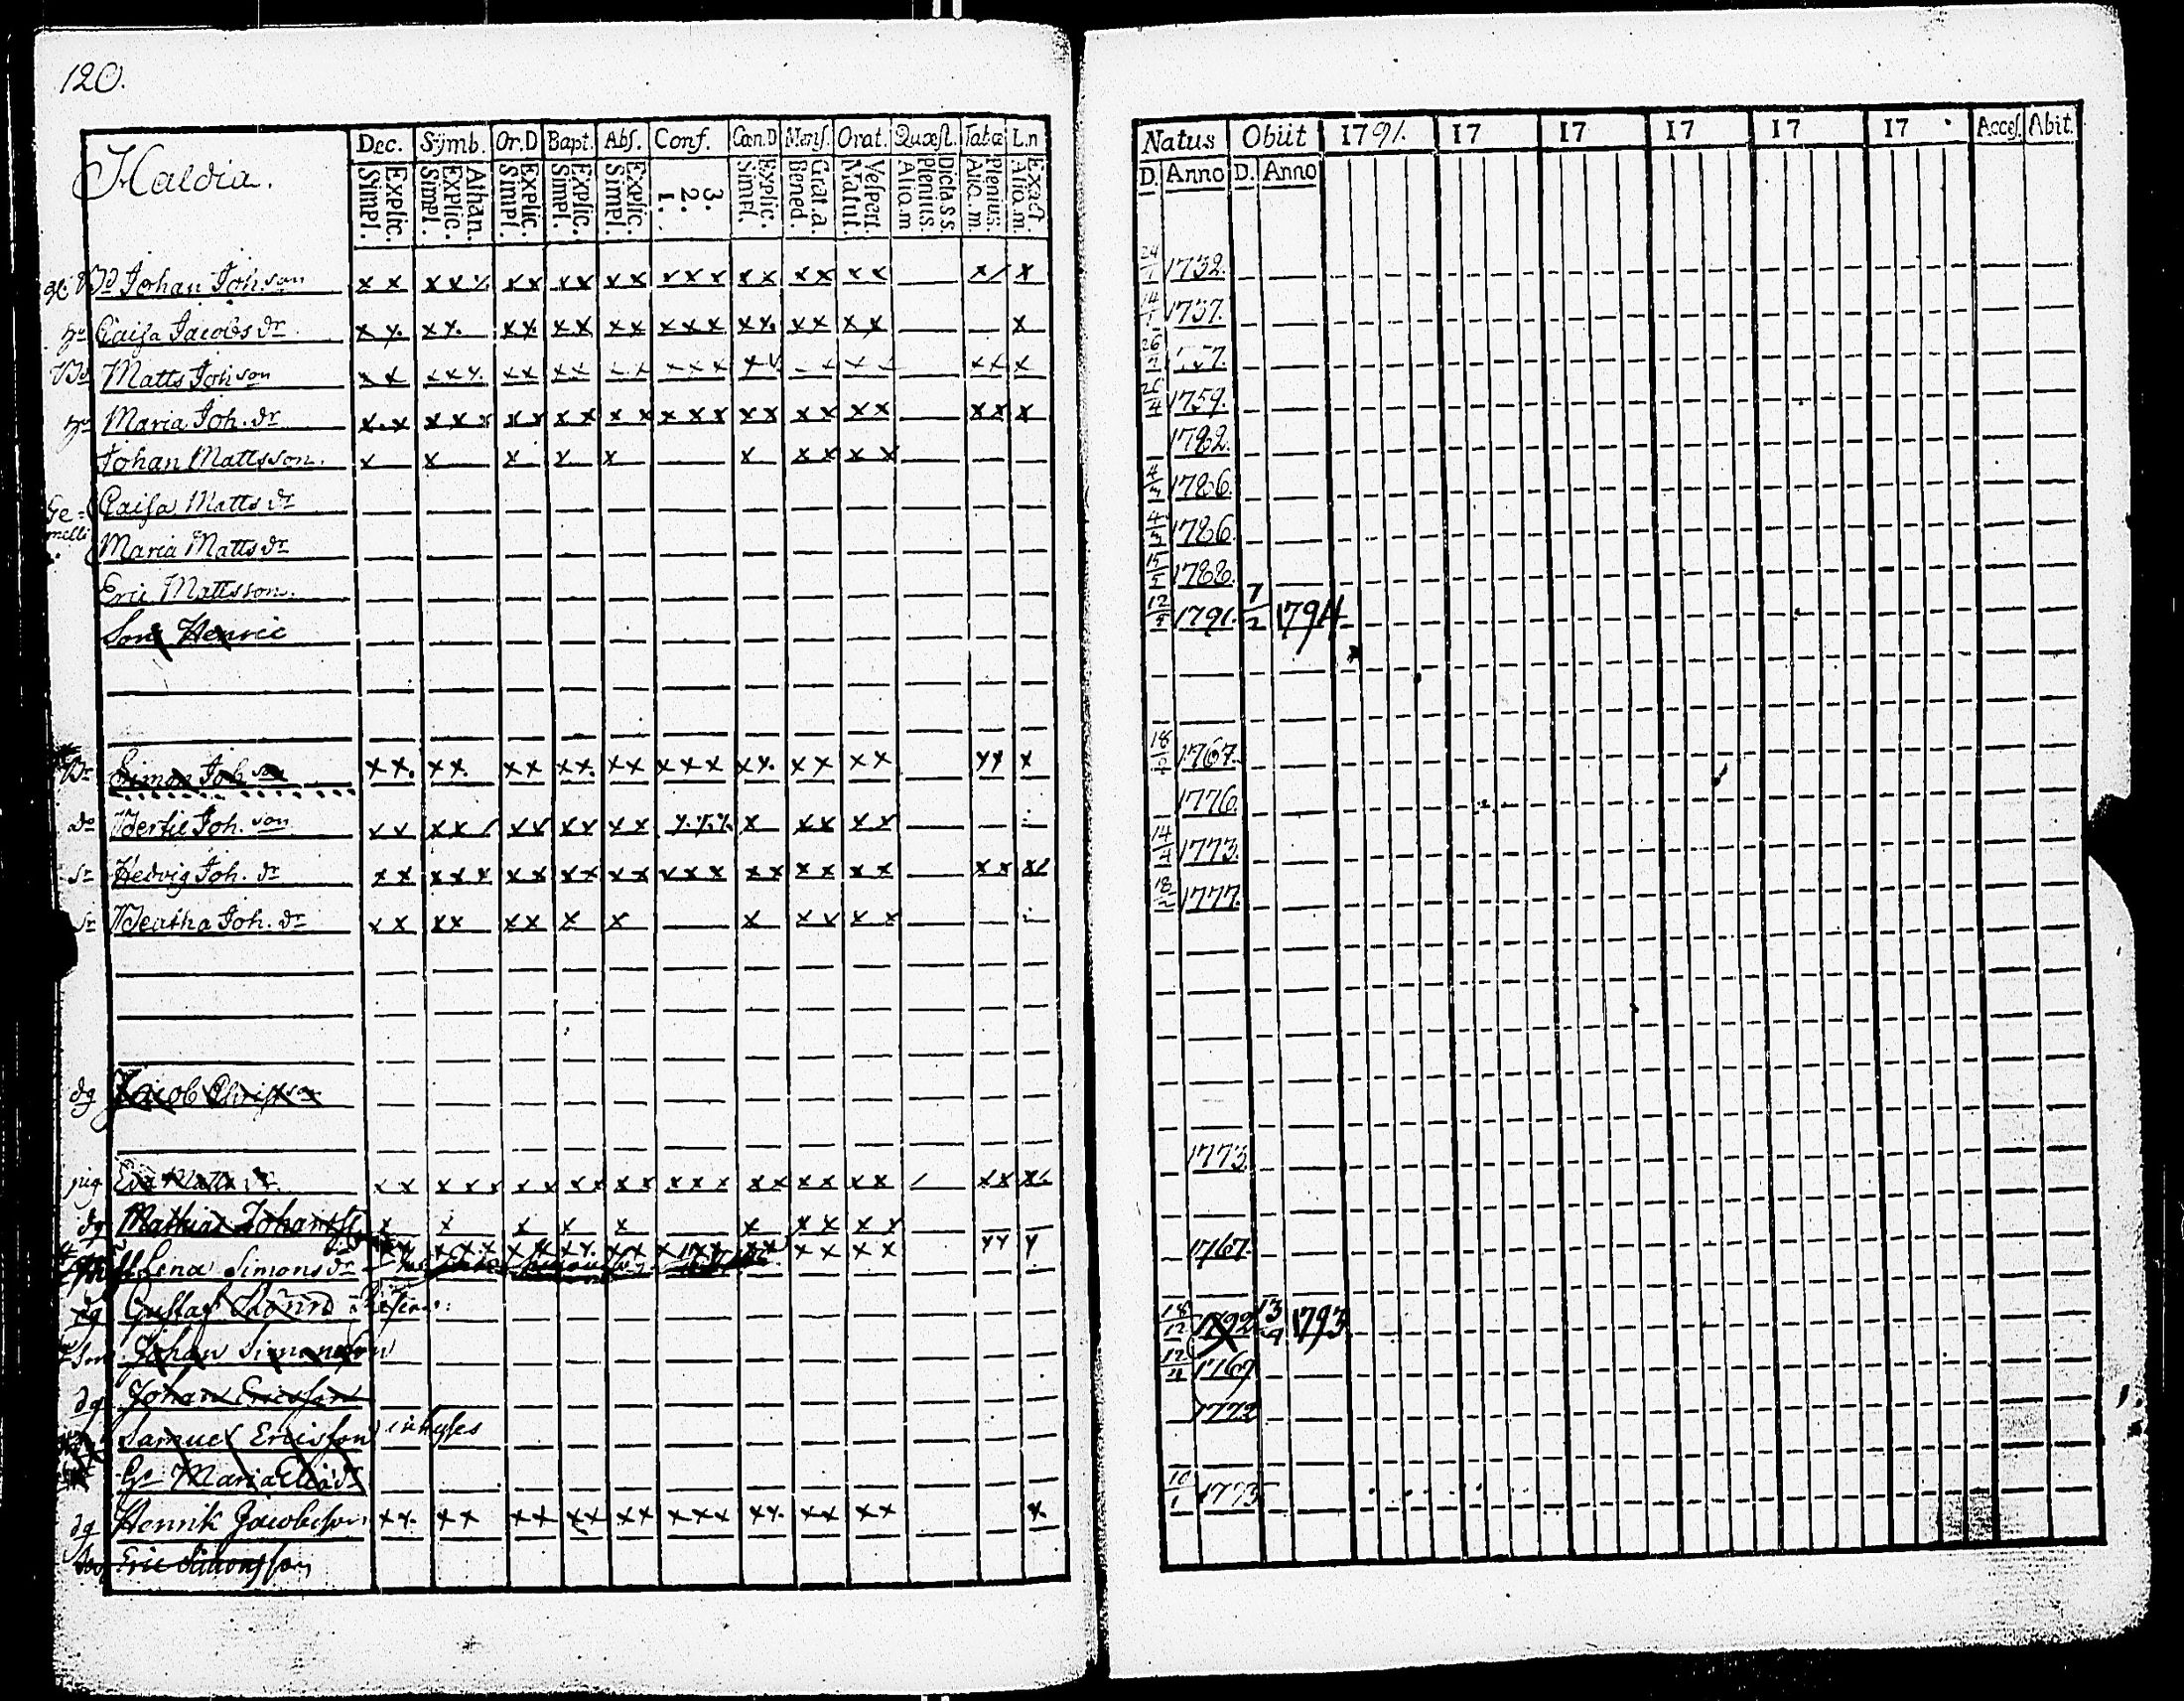 120.
Haldia.
Dec. Sijmb. Or.D Bapt. Abs. Conf. Cœn.D Mens. Orat. Quæst. Tabæ L.n
Simpl. Explic. Simpl. Explic. Athan. Simpl. Explic. Simpl. Explic. Simpl. Explic. 1. 2. 3. Simpl. Explic. Bened. Grat.a. Matut. Vespert. Aliq.m Plenius. Dicta S.S Aliq.m. Plenius. Aliq.m. Exact.
Natus Obiit 1791. 17 17 17 17 17 Acces. Abit.
D. Anno D. Anno
Johan Joh.son x x x x x x x x x x x x x x x x x x x x x / x 24 1732.
hu Caisa Jacobs dr x x x x x x x x x x x x x x x x x x x x 14 1737.
Matts Joh son x x x x x x x x x x x x x x x x x x x x x x x 26
hu Maria Joh. dr x x x x x x x x x x x x x x x x x x x x x x x 26/4 1759.
Johan Mattsson. x x x x x x x x x x 1782.
Ge= Caisa Matts dr 4/3 1786.
melli Maria Matts dr 4/3 1786.
Eric Mattsson. 15/5 1788.
Son Henric 12/5 1791. 7/2 1794
Br Simon Joh son x x x x x x x x x x x x x x x x x x x x x x 18 1767.
do Bertil Joh. son x x x x / x x x x x x x x x x x x x x 1776.
Sr Hedvig Joh. dr x x x x x x x x x x x x x x x x x x x x x x x/ 14/4 1773.
Sr Beatha Joh. dr x x x x x x x x x x x x x 18/2 1777.
dg Jacob Christsson
pig Eva Matts dr x x x x x x x x x x x x x x x x x x x / x x x/ 1773.
dg Mathias Johansson x x x x x x x x x x
Lena Simons dr x x x x x x x x x x x x x x x x x x x x x x x 1767.
dg Gustaf
Son Johan Simonsson 18/12 1792 13/4 1793
dg Johan Ericsson 12 1769
Samuel Ericsson inhyses 1772
Maria
dg Henrik Jacobsson x x x x x x x x x x x x x x x x x x x x 10/1 1773
Eric Simonsson